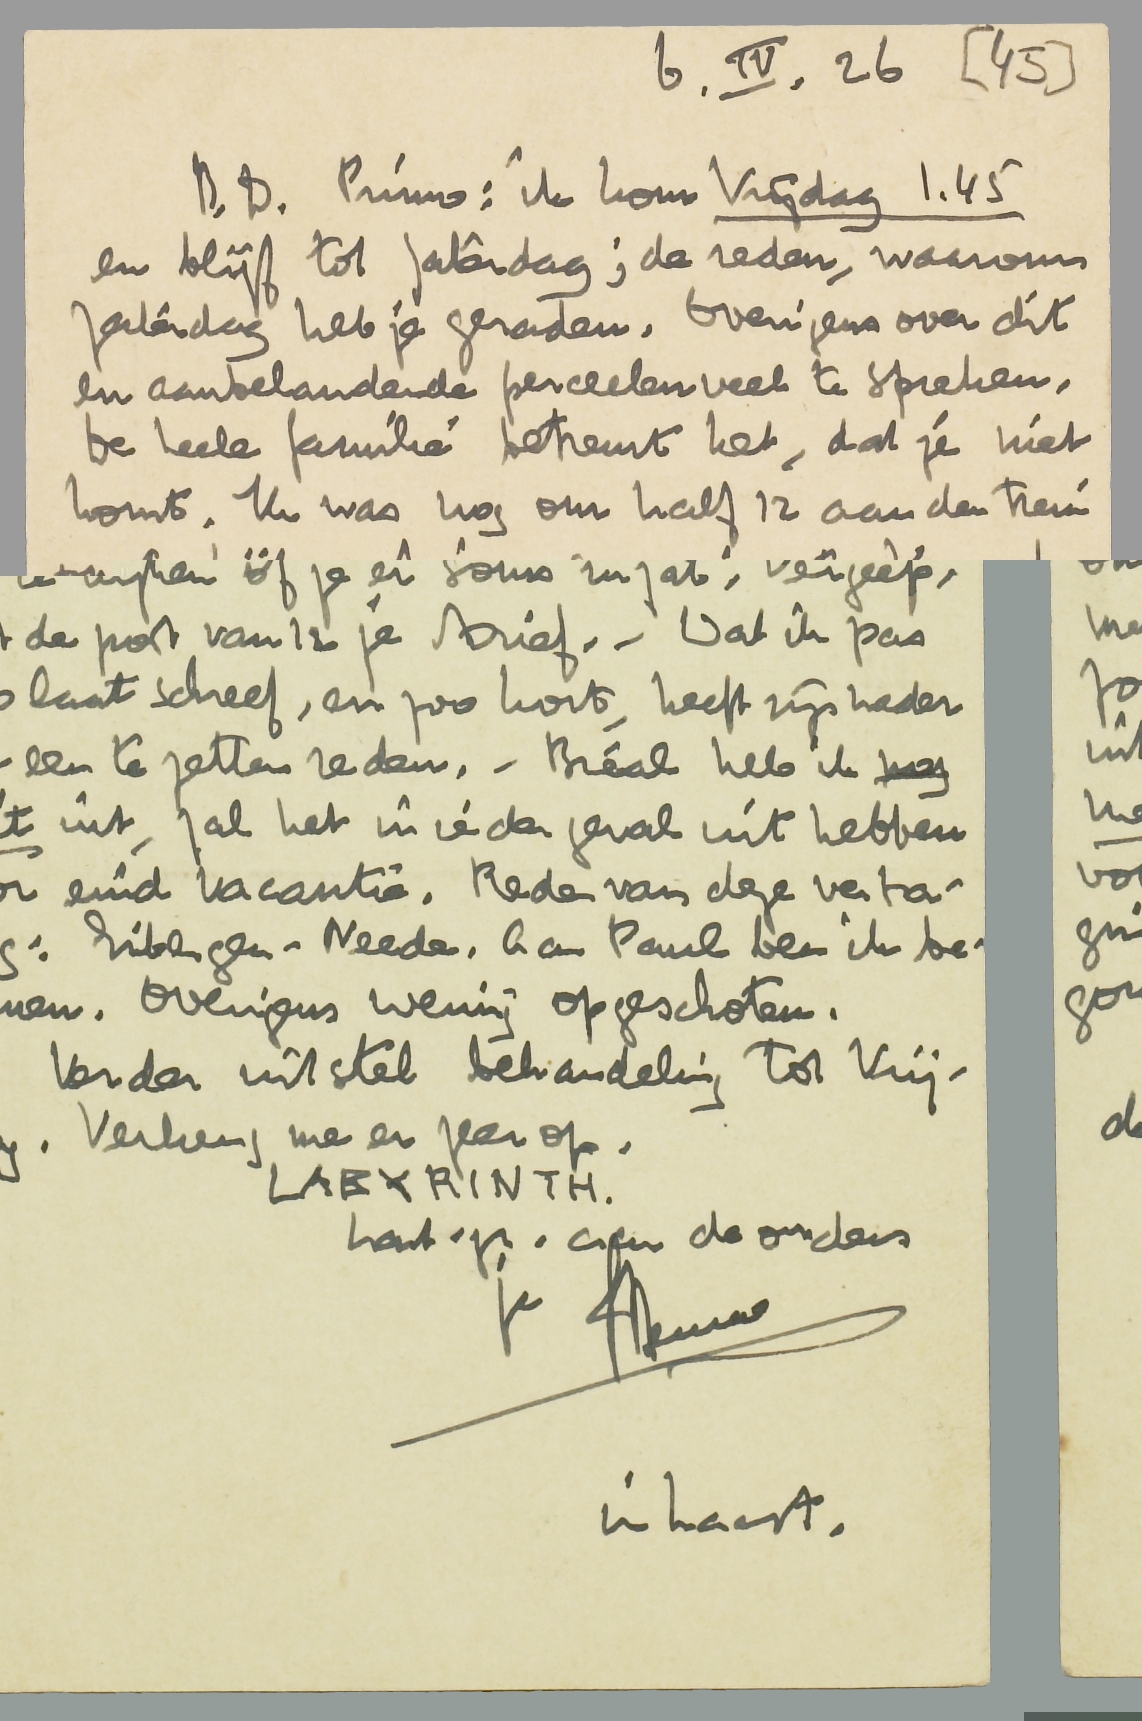 6. IV. 26 [45]
B.D. Primo: ik kom Vrijdag 1.45
en blijf tot zaterdag; de reden, waarom
zaterdag heb je geraden. Overigens over dit
en aanbelandende perceelen veel te spreken.
De heele familie betreurt het, dat je niet
komt. Ik was nog om half 12 aan den trein
of je er soms in zat; vergeefs.
de post van 12 je brief. - Dat ik pas
laat schreef, en zoo kort, heeft zijn nader
een te zetten reden. - Bréal heb ik nog
uit, zal het in ieder geval uit hebben
eind vacantie. Reden van deze vertra-
g: Eibergen - Neede. Aan Paul ben ik be-
nen. Overigens weinig opgeschoten.
Verder uitstel behandeling tot Vrij-
g. Verheug me er zeer op.
LABYRINTH.
hart. gr. aan de ouders
je Menno
in haast.